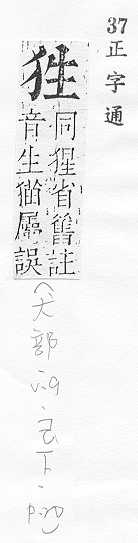 37正字通
狌
同猩省舊註
音生猶屬誤
(犬部